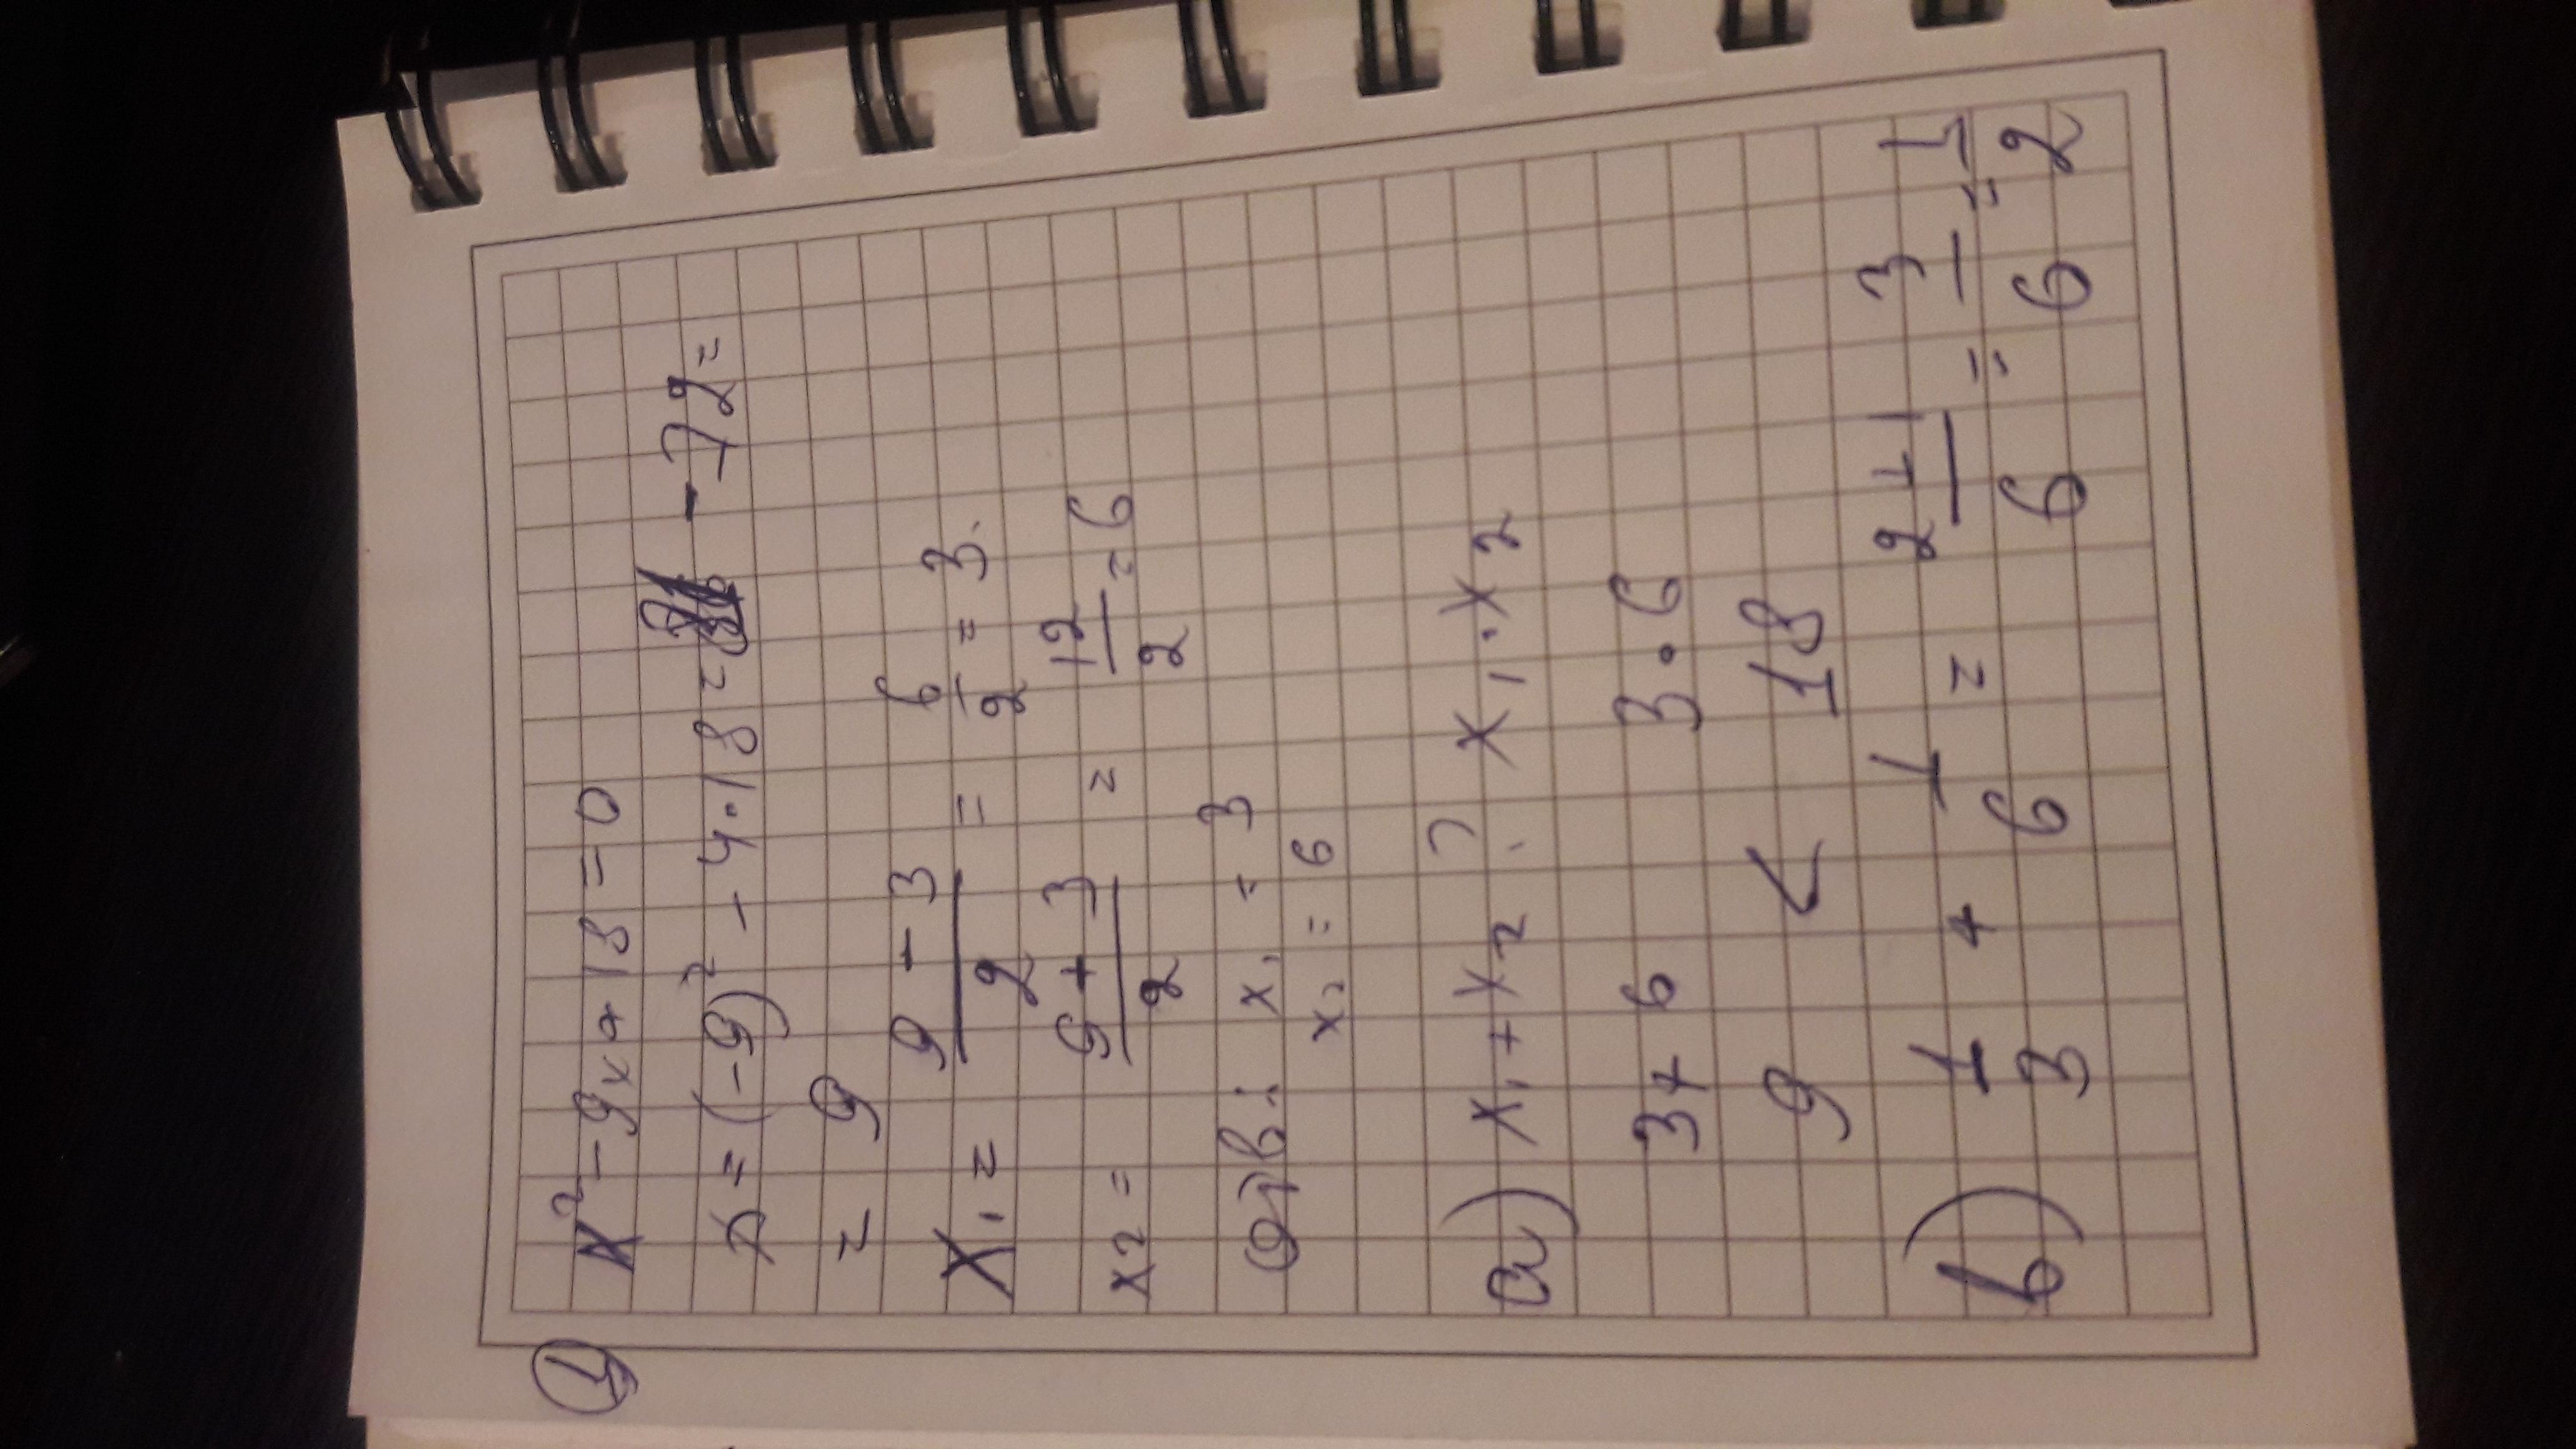 1
x² - 9x + 18 = 0
D = (-9)² - 4·18 = 81 - 72 =
= 9
x₁ = (9 - 3)/2 = 6/2 = 3.
x₂ = (9 + 3)/2 = 12/2 = 6
Отв.: x₁ = 3
x₂ = 6
a) x₁ + x₂ ? x₁ · x₂
3 + 6 3 · 6
9 < 18
b) 1/3 + 1/6 = (2 + 1)/6 = 3/6 = 1/2